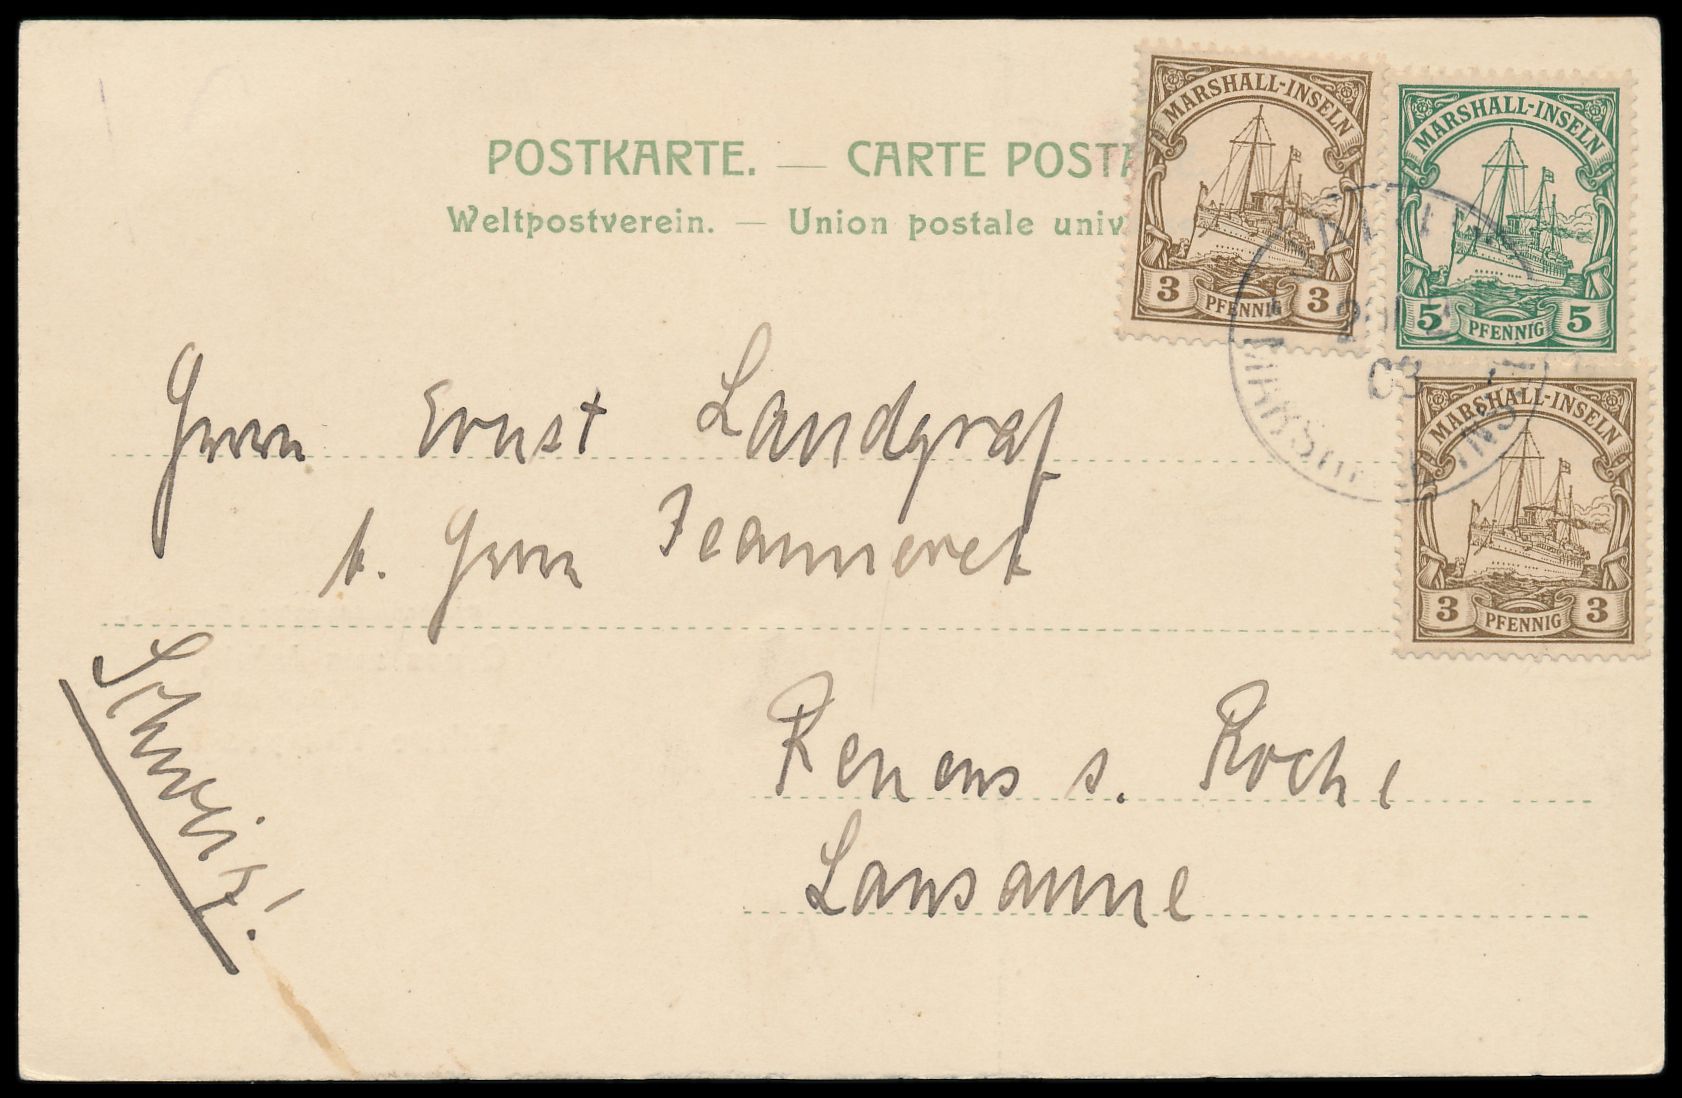 POSTKARTE. — CARTE POSTA
Weltpostverein. — Union postale univ
MARSHALL-INSELN
3 PFENNIG 3
MARSHALL-INSELN
5 PFENNIG 5
MARSHALL-INSELN
3 PFENNIG 3
03
Herrn Ernst Landgraf
b. Herrn Jeanneret
Renens s. Roche
Lausanne
Schweiz!